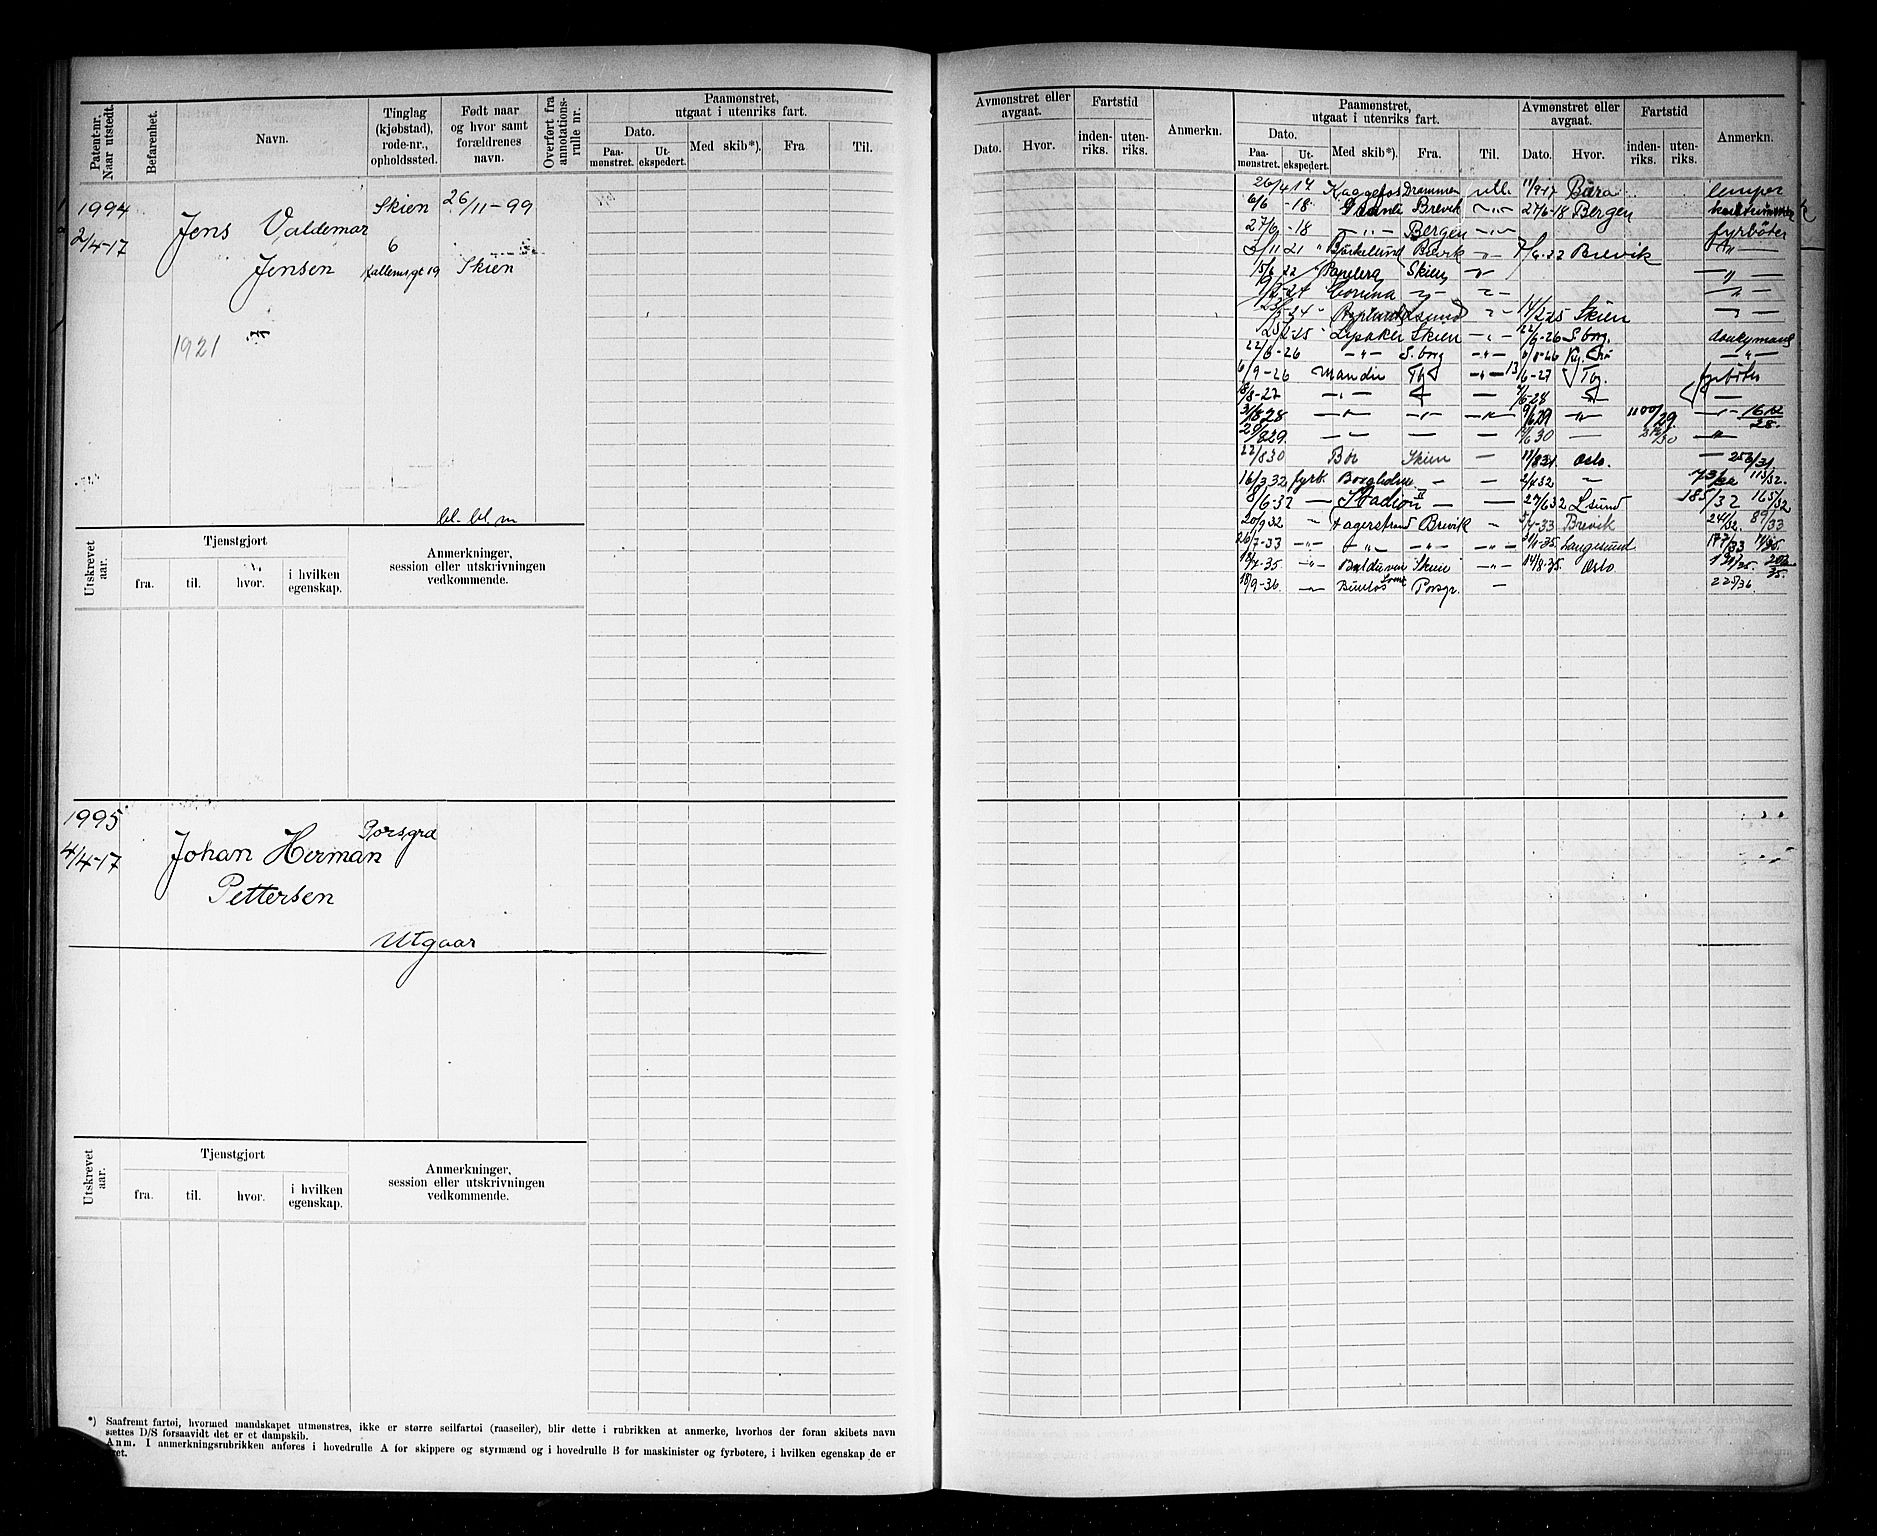 Patent-nr. Naar utstedt.
Befarenhet.
Navn.
Tinglag (kjøbstad), rode-nr., opholdssted.
Født naar og hvor samt forældrenes navn.
Overført fra annotations-rulle nr.
Paamønstret, utgaat i utenriks fart.
Dato.
Paa-mønstret.
Ut-ekspedert.
Med skib*).
Fra
Til.
1994
2/4-17
Jens Valdemar
Jensen
Skien
6
26/11-99
Skien
1921
bl. bl. m
Utskrevet aar.
Tjenstgjort
fra.
til.
hvor.
i hvilken egenskap.
Anmerkninger, session eller utskrivningen vedkommende.
1995
4/4-17
Johan Herman
Pettersen
Porsgrd
Utgaar
Utskrevet aar.
Tjenstgjort
fra.
til.
hvor.
i hvilken egenskap.
Anmerkninger, session eller utskrivningen vedkommende.
*) Saafremt fartøi, hvormed mandskapet utmønstres, ikke er større seilfartøi (raaseiler), blir dette i rubrikken at anmerke, hvorhos der foran skibets navn
sættes D/S forsaavidt det er et dampskib.
Anm. I anmerkningsrubrikken anføres i hovedrulle A for skippere og styrmænd og i hovedrulle B for maskinister og fyrbøtere, i hvilken egenskap de er
Avmønstret eller avgaat.
Dato.
Hvor.
Fartstid
inden-riks.
uten-riks.
Anmerkn.
Paamønstret, utgaat i utenriks fart.
Dato.
Paa-mønstret.
Ut-ekspedert.
Med skib*).
Fra.
Til.
Avmønstret eller avgaat.
Dato.
Hvor.
Fartstid
inden-riks.
uten-riks.
Anmerkn.
26/4 17 Kaggefos Drammen utl. 11/9-17 lemper
6/6 -18 Brevik 27/6-18 Bergen
27/6 -18 -"- Bergen -"- fyrbøter
3/11 21 Bjørkelund Brevik 7/6.22 Brevik
15/6 22 Skien
Corona
-24 14/2-25 Skien
2-25 Lysaker Skien 22/6-26 S.borg. donkeymand
22/6-26 -"- S.borg -"-
6/9-26 Mandin Tbg -"- 13/6-27 Tbg. fyrbøter
8-27 -"-
31/8 28 -"- -"- -"- 1100/29
29. — — 30 —
22/8 30 Bør Skien — 11/8 31. Oslo. — 253/31
16/3 32 fyrb. — — 2/4 32 113/32.
8/6.32 — Stadion II — — 27/6 32 Lsund 185/32 165/32
20/9 32 Fagerstrand Brevik — -33 Brevik 89/33
26/7-33 -"- -"- -"- -"- -35. Langesund
-35. -"- Balduin Skien -"- 14/8-35. Oslo
18/9-36. Porsgr. — 225/36